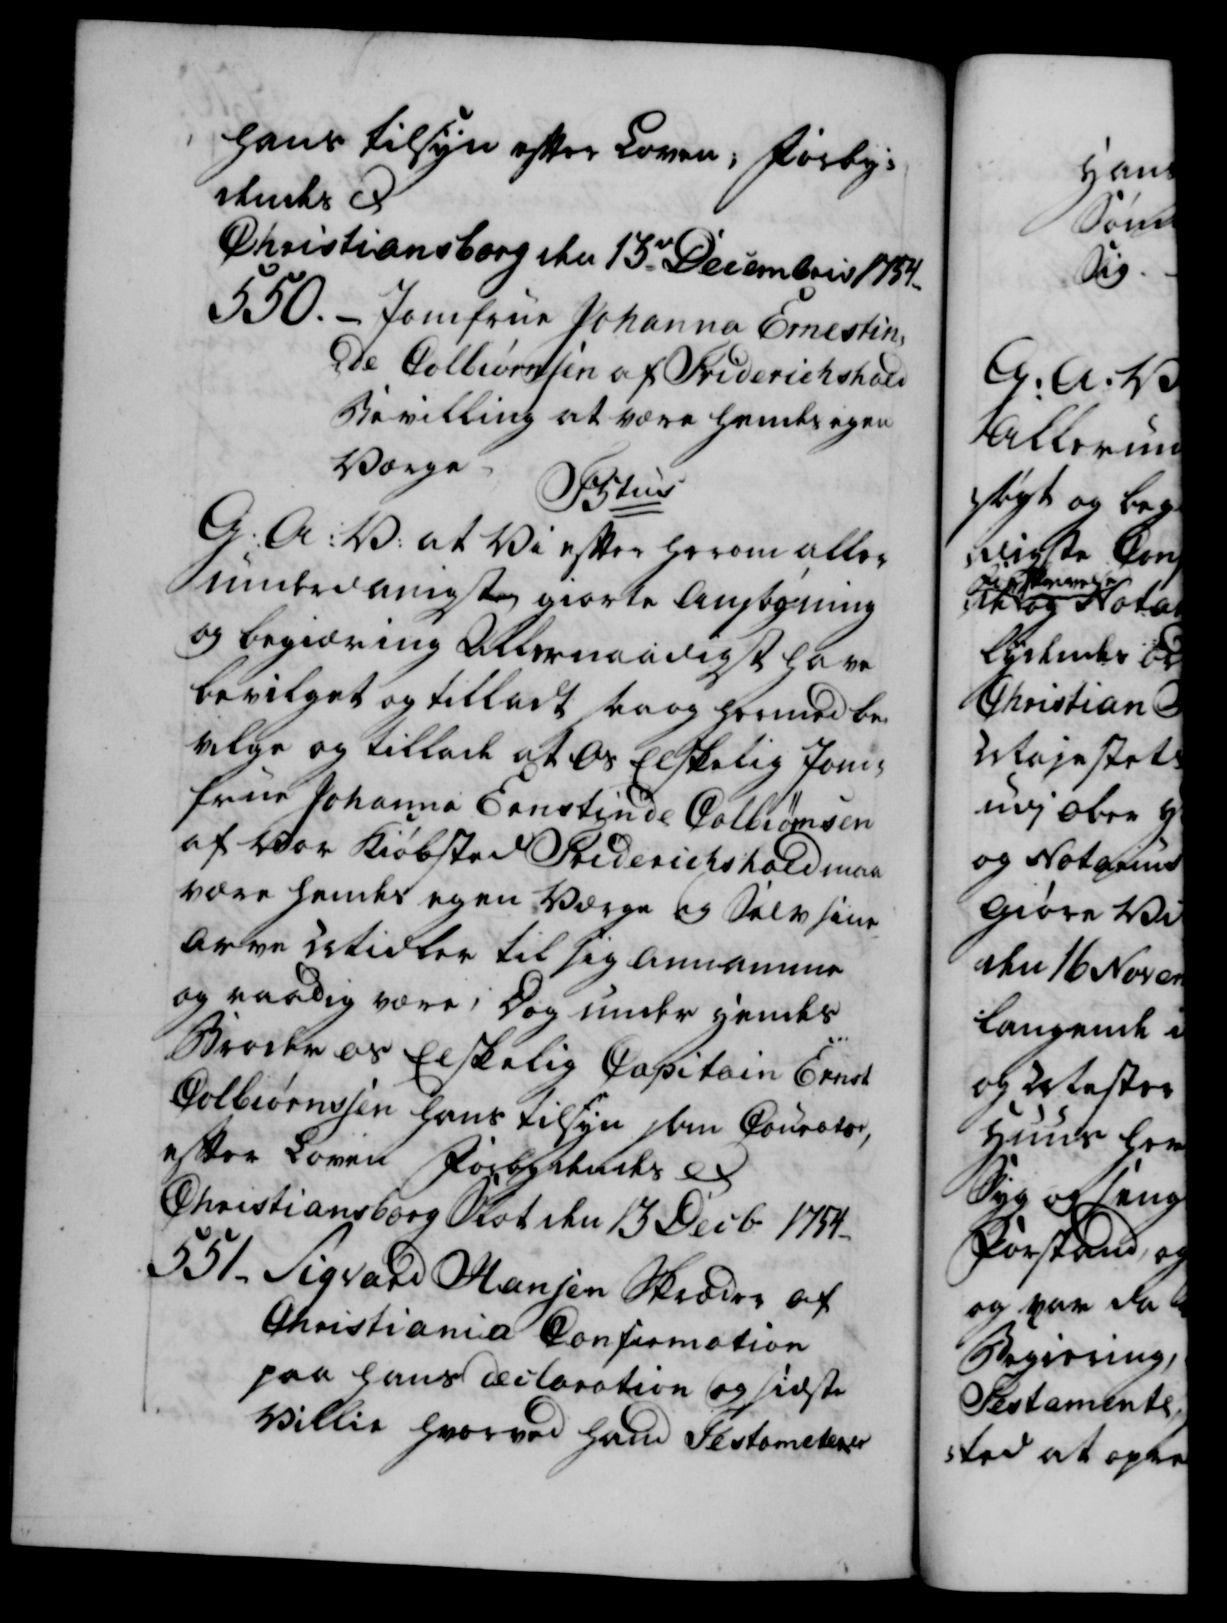 hans tilsÿn efter Loven, Forby:
dendes &
Christiansborg den 13de Decembris 1754.
550. - Jomfrue Johanna Ernestin,
de Colbiørnsen af Friderichshald
Bevilling at være hendes egen
Værge
F5tus
G: A: V: at Vi efter herom aller
underdanigste giorte Ansøgning
og begiæring Allernaadigst have
bevilget og tilladt saa og hermed be
vilge og tillade at Os Elskelig Jom:
frue Johanna Ernstinde Colbiørnsen
af Vor Kiøbsted Friderichshald maa
være hendes egen Værge og Selv sine
Arve Midler til sig annamme
og raadig være, Dog under hendes
Broder os Elskelig Capitain Ernst
Colbiørnssen hans tilsÿn som Courator,
efter Loven Forbydendes &
Christiansborg Slot den 13 Decb 1754.
551. Sigvard Hansen Skræder af
Christiania Confirmation
paa hans declaration og sidste
Villie hvorved hand Testamenterer
Hans
Sig.
G. A. V
Allerun
søgt og beg
digste Con
Afskrevene
de og Nota
lydendes Or
Christian
Majestets
udj over
og Notarius
Giøre Vi
den 16 Novem
langende i
og Mester
Huus her
Syg og seng
Forstand, og
og var da
Begiering,
Testamente
sted at opre